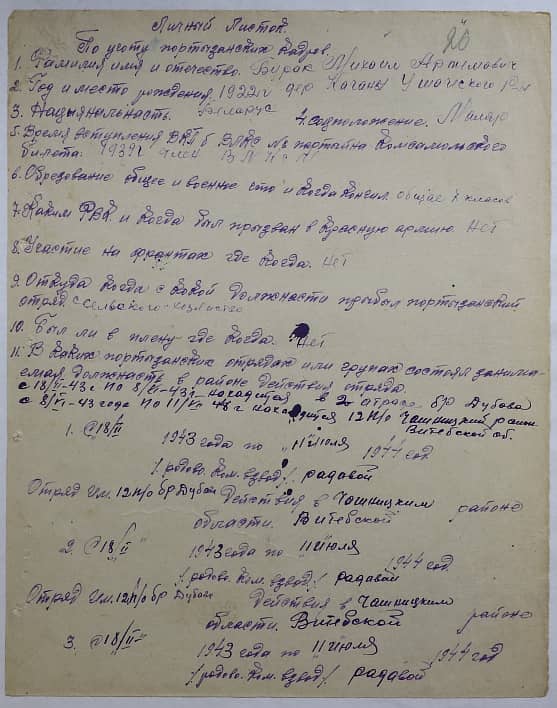 20
Личный Листок.
По учоту портызанских кадров.
1. Фамилия имя и отечество. Бурак Михаил Артимович
2. Год и место рождения 1922 г дер Каганы Ушачского Р-н
3. Нацыянальность. Беларус 4. Соцположение.
5. Время вступления ВКП б ВЛКС № портбилта Комсамольского
билета. 1939 г член
6. Образование общее и военное сто и Когда Кончил. общае классов
7. Каким РВК. и когда был прызван в Красную армию. Нет
8. Участие на франтах где когда. Нет
9. Откуда когда с какой должности прыбыл портызанский
отряд. с сельского-хозяйства
10. Был ли в плену где когда. Нет
11. В каких портызанских отрядах или групах состоял занима-
емая должность в районе действия отряда.
с 18/II-43 г по 8/VI-43 г находится в 2 отраде бр Дубова
с 8/VI-43 годе по 11/VI 48 г находится 12 п/о Чашницкий район
Витебской об.
1. С 18/II 1943 года по "11" июля 1944 год
/родово. Ком. взвод/. радавой
Отряд им. 12 п/о бр Дубов Действия в Чашницким районе
области. Витебской
2. С 18/II" 1943 года по "11" июля 1944 год
/родово. Ком. взвод/ радавой
Отряд им. 12 п/о бр Дубов Действия в Чашницким
области. Витебской районе
3. С 18/II" 1943 года по "11" июля 1944 год
/родово. Ком. взвод/. радавой